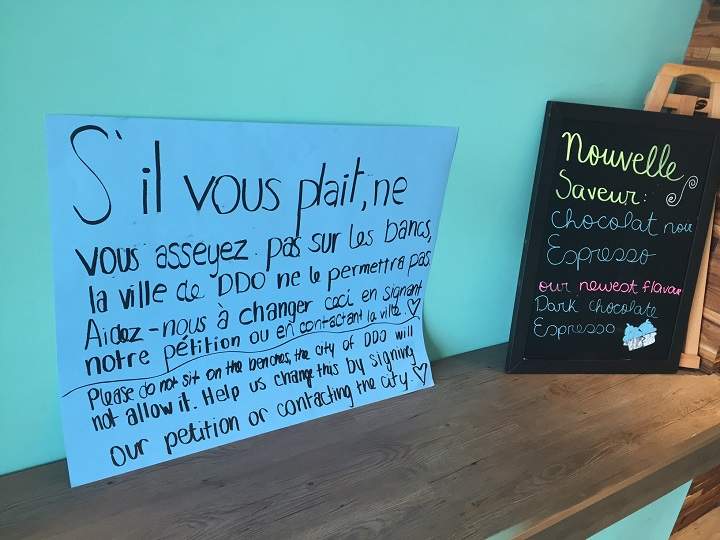 S'il vous plait, ne
vous asseyez pas sur les bancs,
la ville de DDO ne le permettra pas.
Aidez-nous à changer ceci en signant
notre pétition ou en contactant la ville. ♡
Please do not sit on the benches, the city of DDO will
not allow it. Help us change this by signing
our petition or contacting the city. ♡
Nouvelle
Saveur:
Chocolat noir
Espresso
our newest flavour
Dark chocolate
Espresso